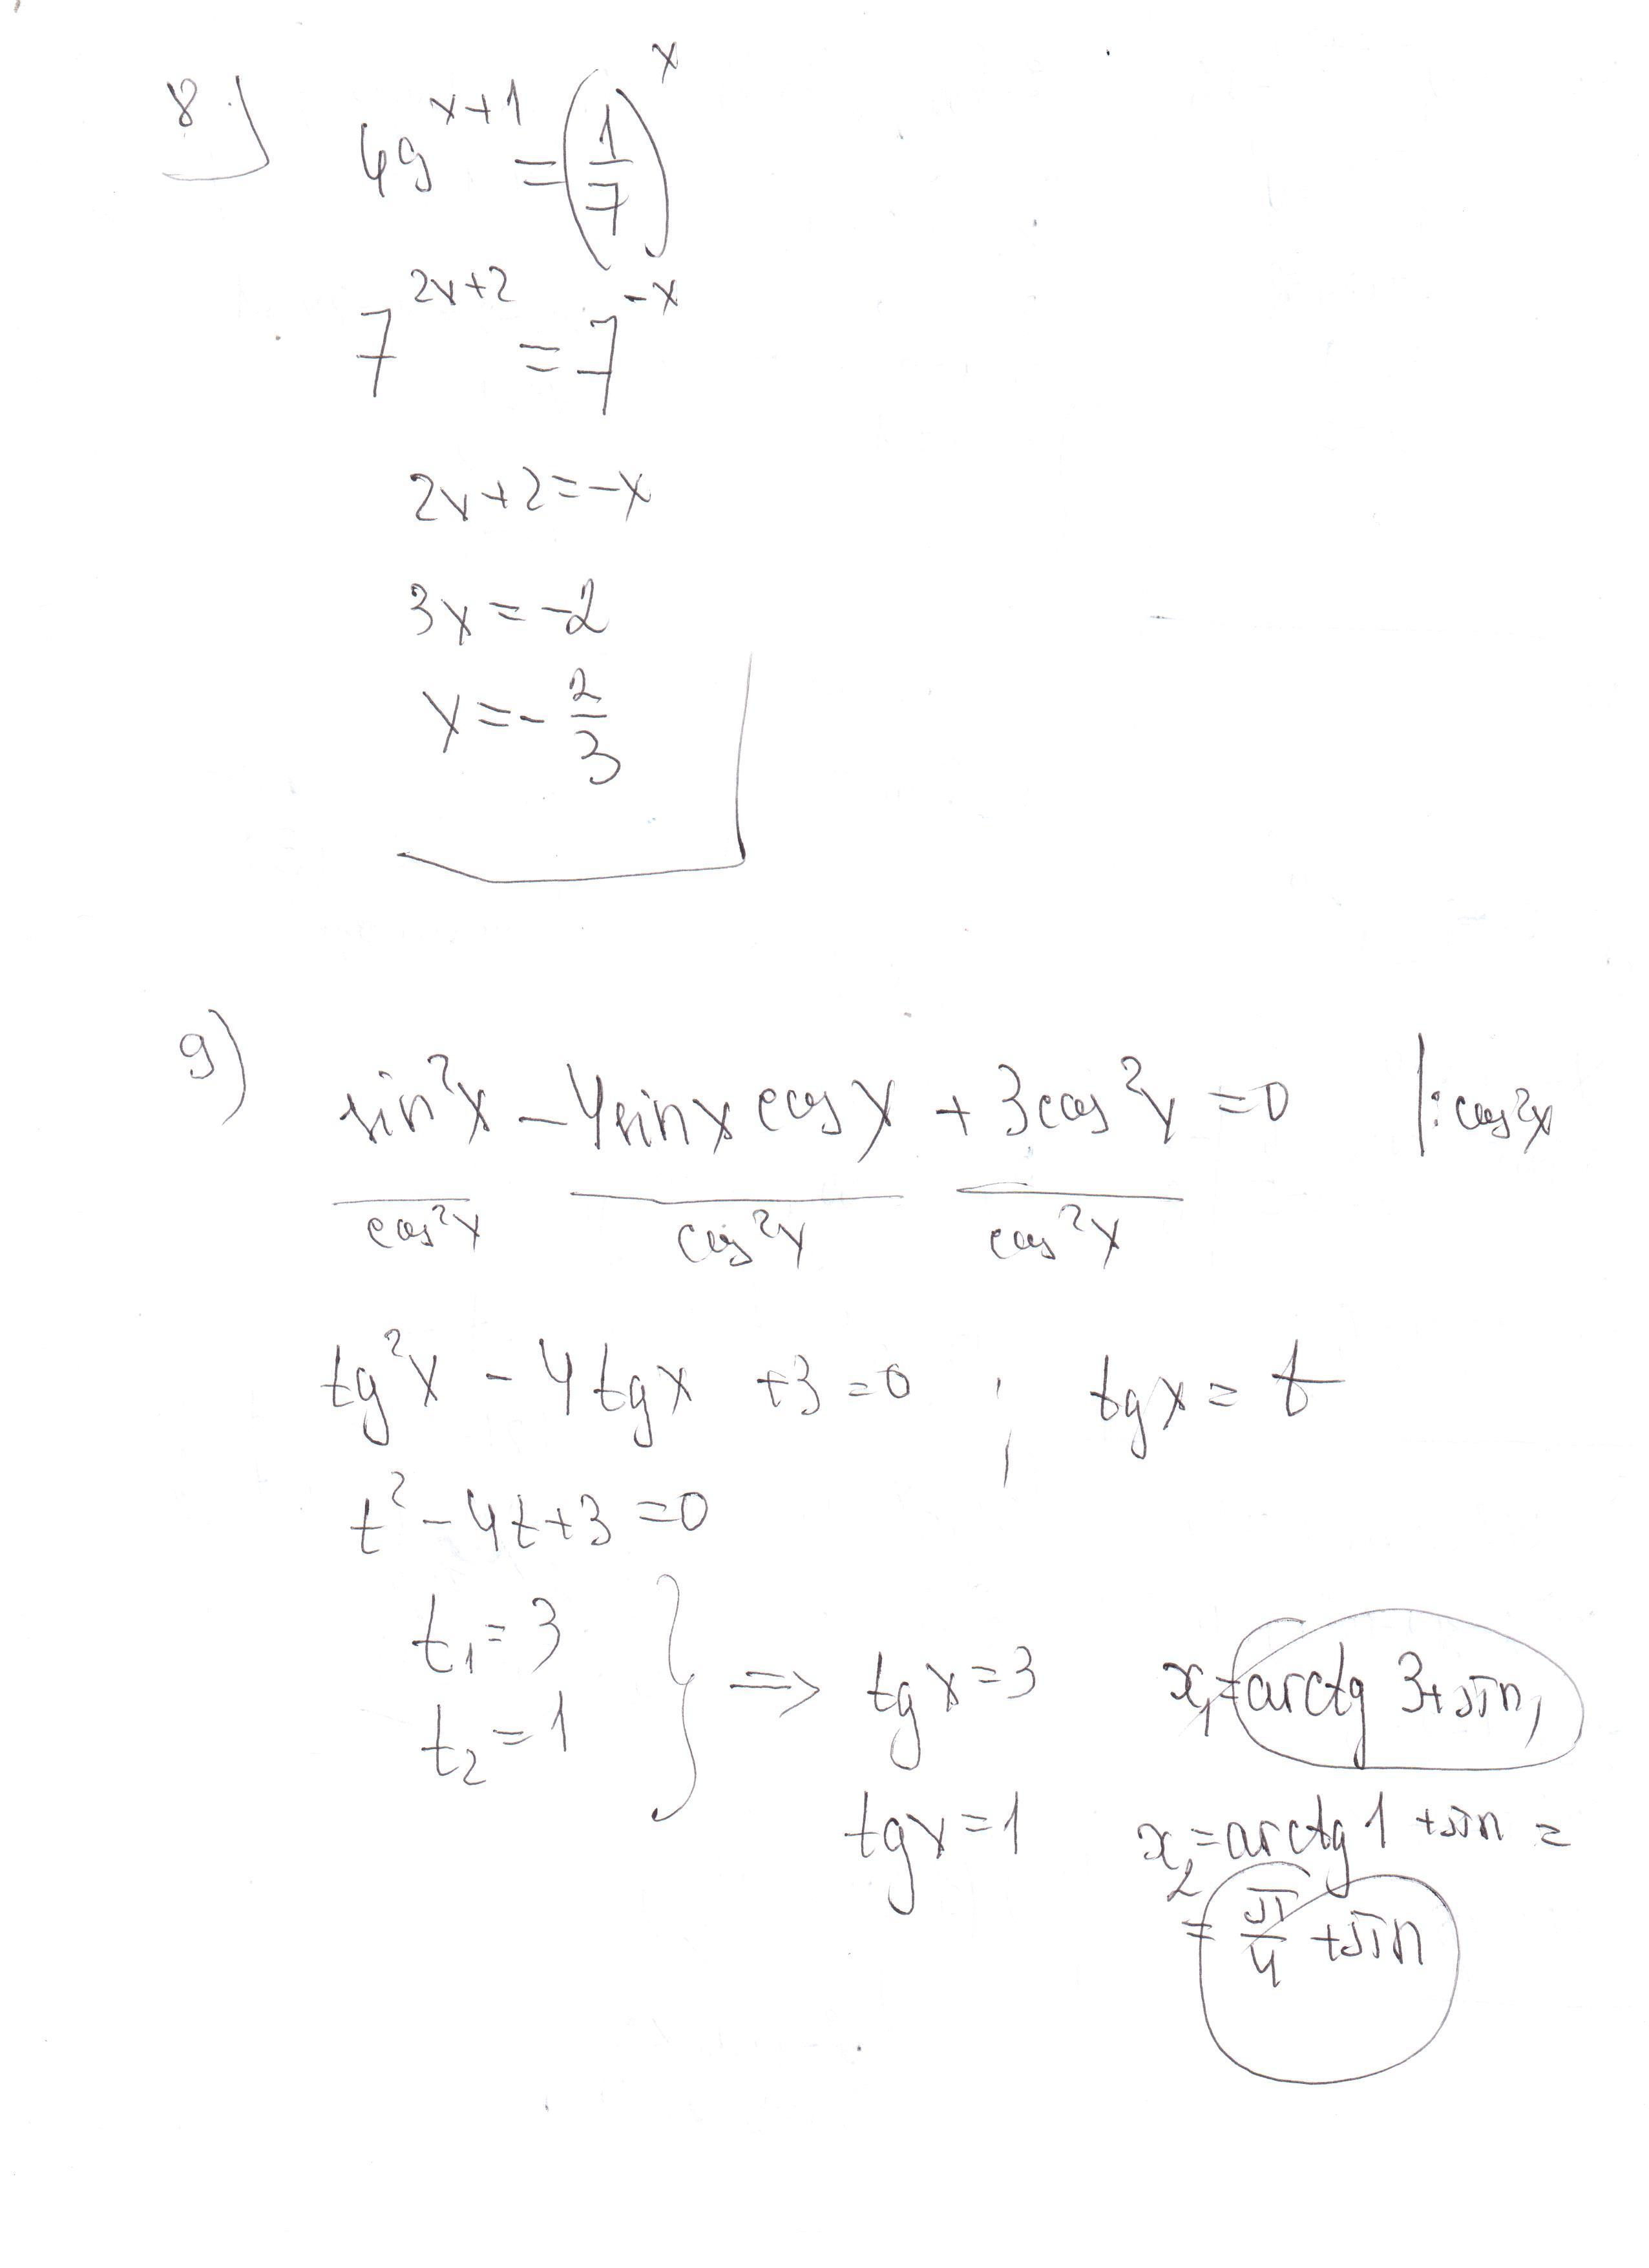 8)
49^(x+1) = (1/7)^x
7^(2x+2) = 7^(-x)
2x+2=-x
3x=-2
x=-2/3
9)
sin²x - 4sinx cosx + 3cos²x = 0 |:cos²x
cos²x cos²x cos²x
tg²x - 4tgx +3=0 ; tgx = t
t² - 4t+3=0
t₁=3
t₂=1
} => tgx=3 x₁=arctg 3+πn,
tgx=1 x₂=arctg1+πn=
=π/4+πn